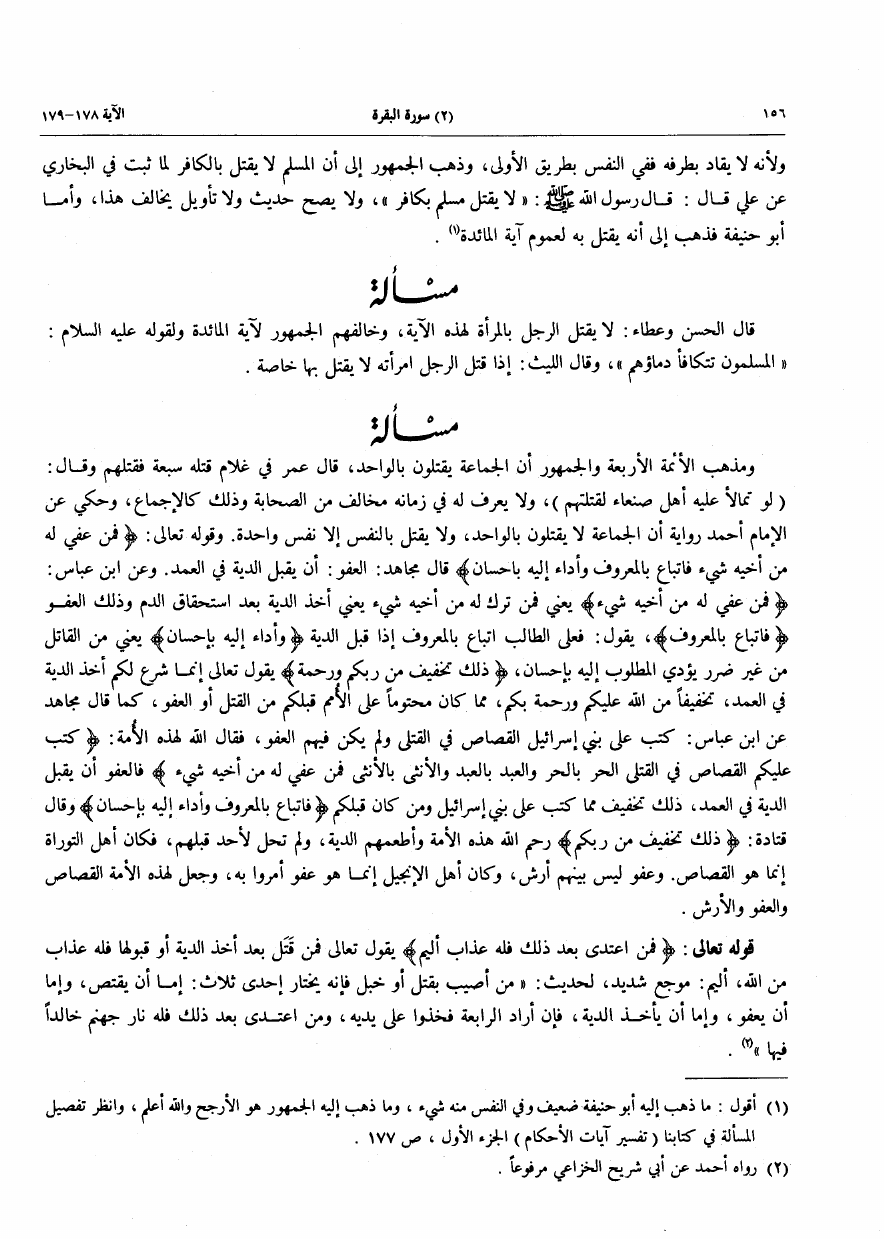 ١٥٦
(٢) سورة البقرة
الآية ١٧٨-١٧٩
ولأنه لا يقاد بطرفه ففي النفس بطريق الأولى، وذهب الجمهور إلى أن المسلم لا يقتل بالكافر لما ثبت في البخاري
عن علي قال : قال رسول الله ﷺ : « لا يقتل مسلم بكافر »، ولا يصح حديث ولا تأويل يخالف هذا، وأما
أبو حنيفة فذهب إلى أنه يقتل به لعموم آية المائدة(١) .
مسْألة
قال الحسن وعطاء: لا يقتل الرجل بالمرأة لهذه الآية، وخالفهم الجمهور لآية المائدة ولقوله عليه السلام :
« المسلمون تتكافأ دماؤهم »، وقال الليث: إذا قتل الرجل امرأته لا يقتل بها خاصة .
مسْألة
ومذهب الأئمة الأربعة والجمهور أن الجماعة يقتلون بالواحد، قال عمر في غلام قتله سبعة فقتلهم وقال:
( لو تمالأ عليه أهل صنعاء لقتلتهم )، ولا يعرف له في زمانه مخالف من الصحابة وذلك كالإجماع، وحكي عن
الإمام أحمد رواية أن الجماعة لا يقتلون بالواحد، ولا يقتل بالنفس إلا نفس واحدة. وقوله تعالى: ﴿ فمن عفي له
من أخيه شيء فاتباع بالمعروف وأداء إليه باحسان﴾ قال مجاهد: العفو: أن يقبل الدية في العمد. وعن ابن عباس:
﴿ فمن عفي له من أخيه شيء﴾ يعني فمن ترك له من أخيه شيء يعني أخذ الدية بعد استحقاق الدم وذلك العفو
﴿ فاتباع بالمعروف﴾، يقول: فعلى الطالب اتباع بالمعروف إذا قبل الدية ﴿وأداء إليه بإحسان﴾ يعني من القاتل
من غير ضرر يؤدي المطلوب إليه بإحسان، ﴿ ذلك تخفيف من ربكم ورحمة﴾ يقول تعالى إنما شرع لكم أخذ الدية
في العمد، تخفيفاً من الله عليكم ورحمة بكم، مما كان محتوماً على الأُمم قبلكم من القتل أو العفو ، كما قال مجاهد
عن ابن عباس: كتب على بني إسرائيل القصاص في القتلى ولم يكن فيهم العفو، فقال الله لهذه الأُمة: ﴿ كتب
عليكم القصاص في القتلى الحر بالحر والعبد بالعبد والأنثى بالأنثى فمن عفي له من أخيه شيء ﴾ فالعفو أن يقبل
الدية في العمد، ذلك تخفيف مما كتب على بني إسرائيل ومن كان قبلكم ﴿فاتباع بالمعروف وأداء إليه بإحسان﴾ وقال
قتادة: ﴿ ذلك تخفيف من ربكم﴾ رحم الله هذه الأمة وأطعمهم الدية، ولم تحل لأحد قبلهم، فكان أهل التوراة
إنما هو القصاص. وعفو ليس بينهم أرش، وكان أهل الإنجيل إنما هو عفو أمروا به، وجعل لهذه الأمة القصاص
والعفو والأرش .
قوله تعالى : ﴿ فمن اعتدى بعد ذلك فله عذاب أليم﴾ يقول تعالى فمن قَتَل بعد أخذ الدية أو قبولها فله عذاب
من الله، أليم: موجع شديد، لحديث: « من أصيب بقتل أو خبل فإنه يختار إحدى ثلاث: إما أن يقتص، وإما
أن يعفو ، وإما أن يأخذ الدية ، فإن أراد الرابعة فخذوا على يديه، ومن اعتدى بعد ذلك فله نار جهنم خالداً
فيها »(٢) .
(١) أقول : ما ذهب إليه أبو حنيفة ضعيف وفي النفس منه شيء ، وما ذهب إليه الجمهور هو الأرجح والله أعلم ، وانظر تفصيل
المسألة في كتابنا ( تفسير آيات الأحكام ) الجزء الأول ، ص ١٧٧ .
(٢) رواه أحمد عن أبي شريح الخزاعي مرفوعاً .